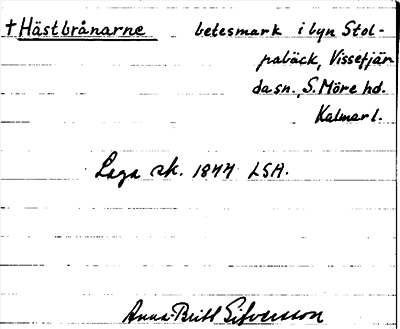 † Hästbrånarne betesmark i byn Stol-
pabäck, Vissefjär
da sn., S. Möre hd.
Kalmar l.
Laga sk. 1877 LSA.
Anna-Britt Sifversson